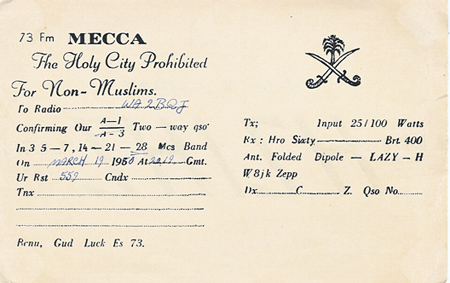 73 Fm MECCA
The Holy City Prohibited
For Non-Muslims.
To Radio
Confirming Our A-1 A-3 Two-way qso'
In 3 5 - 7, 14 - 21 - 28 Mcs Band
On MARCH 19 1950 At Gmt.
Ur Rst 559 Cndx
Tnx
Benu, Gud Luck Es 73.
Tx; Input 25/100 Watts
Rx : Hro Sixty Brt. 400
Ant. Folded Dipole - LAZY - H
W8jk Zepp
Dx C Z. Qso No.